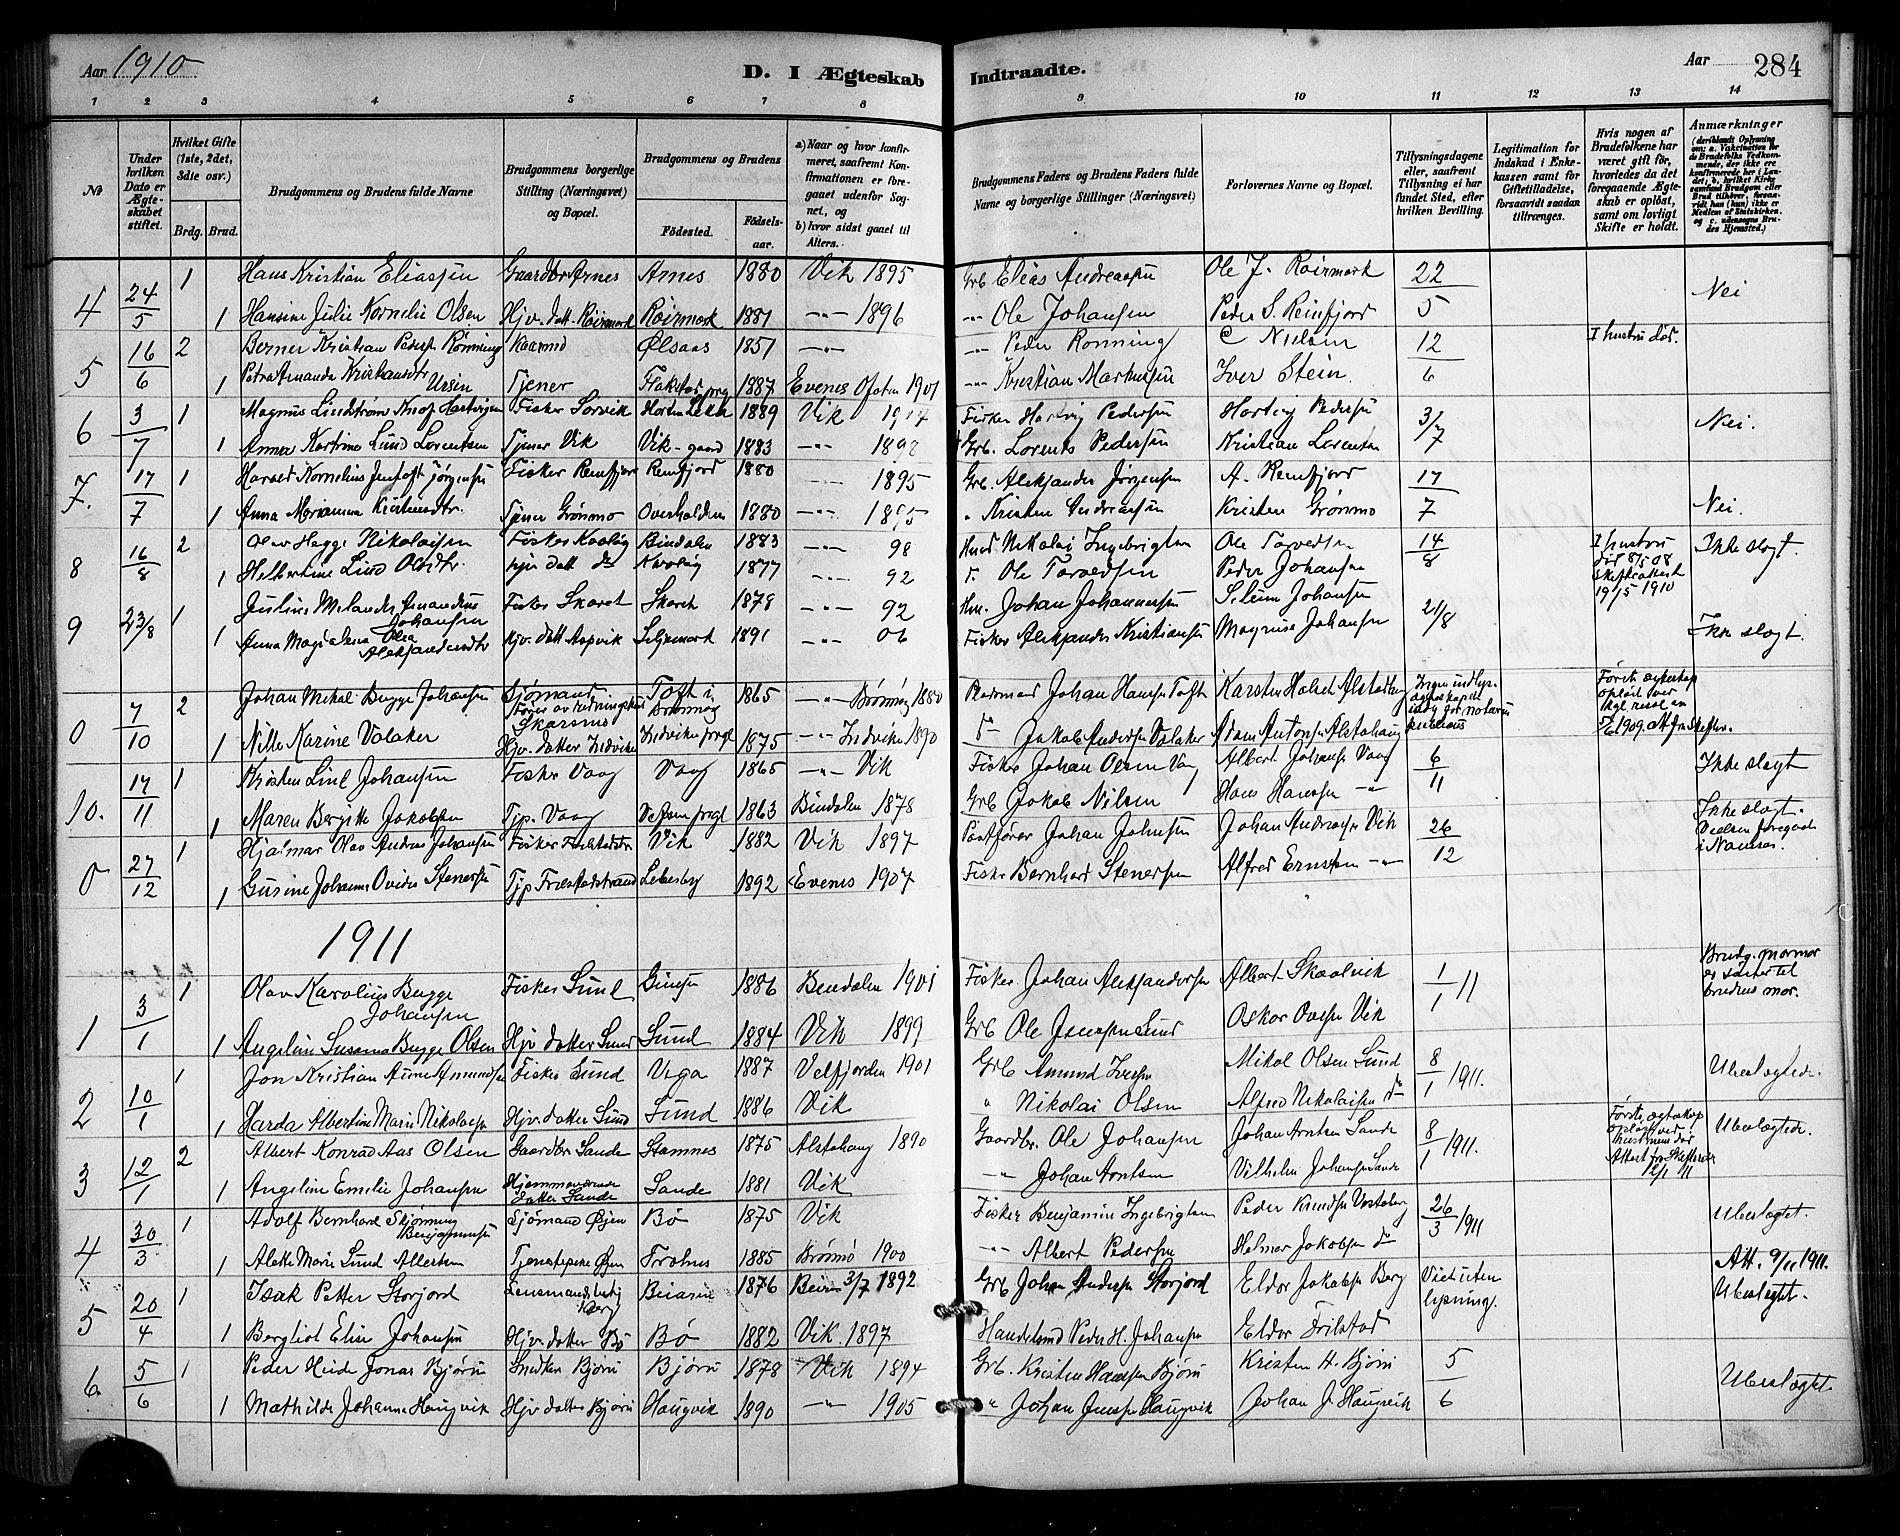 Aar 1910
D. I Ægteskab
Indtraadte.
Aar
284
1 2 3 4 5 6 7 8
9 10 11 12 13 14
№
Under hvilken Dato er Ægteskabet stiftet.
Hvilket Gifte (1ste, 2det, 3die osv.)
Brdg. Brud.
Brudgommens og Brudens fulde Navne
Brudgommens borgerlige Stilling (Næringsvei) og Bopæl.
Brudgommens og Brudens
Födested. Födselsaar.
a) Naar og hvor konfirmeret, saafremt Konfirmationen er foregaaet udenfor Sognet, og
b) hvor sidst gaaet til Alters.
Brudgommens Faders og Brudens Faders fulde Navne og borgerlige Stillinger (Næringsvei)
Forlovernes Navne og Bopæl.
Tillysningsdagene eller, saafremt Tillysning ei har fundet Sted, efter hvilken Bevilling.
Legitimation for Indskud i Enkekassen samt for Giftetilladelse, forsaavidt saadan tiltrænges.
Hvis nogen af Brudefolkene har været gift för, hvorledes da det foregaaende Ægteskab er oplöst, samt om lovligt Skifte er holdt.
Anmærkninger
4 24/5 1 Hans Kristian Eliassen Gaardbr Arnes Arnes 1880 Vik 1895 Grb Elias Andreassen Ole J. Röirmark 22
1 Hansine Julie Kornelie Olsen Hjv. datt. Röirmark Röirmark 1881 -"- 1896 -"- Ole Johansen Peder S. Reinfjord 5 Nei
5 16/6 2 Berner Kristian Peders Rønning Kaarmo Ølsaas 1851 -"- -"- Peder Rønning C Nielsen 12 I hustru död.
1 Petra Amanda Kristiansdtr Ursin Tjener 1887 Evenes Ofoten 1901 -"- Kristian Markussen Iver Stein. 6
6 3/7 1 Magnus Lindstrøm Knof Hartvigsen Fisker Sorvik Horten Leka 1889 Vik Fisker Hartvig Pedersen Hartvig Pedersen 3/7 Nei.
1 Anna Katrine Lund Lorentsen Tjener Vik Vik-gaard 1883 -"- 1898 Grb. Lorents Pedersen Kristian Lorentsen
7. 17/7 1 Harald Kornelius Jentoft Jörgensen Fisker Renfjord Renfjord 1880 1895 Grb. Aleksander Jörgensen A. Renfjord 17
1 Anna Marianna Kristensdtr. Tjener Grönmo Overhalden 1880 -"- 1895 " Kristen Andreassen Kristen Grönmo 7 Nei.
8 16/8 2 Olav Hegge Nikolaisen Fisker Kvaløy Bindalen 1883 -"- 98 Nikolai Ingebrigtsen Ole Torvedsen 14 I hustru död 8/5 08 Ikke slegt.
1 Helbertine Lund Olsdtr. Hjv datt do Kvaløy 1877 -"- 92 F. Ole Torvedsen Peder Johansen 8 Skifteattest 19/5 1910
9 23/8 1 Julius Milander Amandius Johansen Fisker Skaret Skaret 1878 -"- 92 Hm. Johan Johannessen Selium Johansen 21/8
1 Anna Magdalena Olea Aleksandersdtr Hjv. datt Aspvik 1891 -"- 06 Fisker Aleksander Kristiansen Magnus Johansen Ikke slegt.
0 7/10 2 Johan Mikal Bugge Johansen Sjömand Fører av redningsskøit Skarsmo Toft i Brønnøy 1865 -"- Brönnöy 1880 Johan Hansen Toft Karsten Hølset Alstadhaug Første ægteskap opløst ved kgl. resol. av
1 Nille Karine Valaker Hjv. datter Indviken 1875 -"- Indviken 1890 do Jakob Andersen Valaker Adam Antonsen Alstahaug
10. 14/11 1 Kristen Lind Johansen Fisker Vaag Vaag 1865 -"- Vik Fisker Johan Olsen Vaag Albert Johansen Vaag 6 Ikke slegt
1 Maren Bergitte Jakobsen Tjp. Vaag 1863 Bindalen 1878 Grb Jakob Nilsen Hans Hansen -"- 11 Ikke slegt.
0 27/12 1 Hjalmar Olav Andreas Johansen Fisker Vik 1882 Vik 1897 Postfører Johan Johnsen Johan Andreassen Vik 26 Vielsen foregaaet i Namsos.
1 Gusine Johanne Ovidie Stenersen Tjp Lebesby 1892 Evenes 1907 Fisker Bernhard Stenersen Alfred Ernstsen -"- 12
1911
1 3/1 1 Olav Karolius Bugge Johansen Fisker Sund 1886 Bindalen 1901 Fisker Johan Aleksandersen Albert Skaalvik 1/1 11 Brudg. mormor er søster til brudens mor.
1 Angeline Susanna Bugge Olsen Hjv datter Sund Sund 1884 Vik 1899 Grb Ole Jensen Sund Oskar Ovesen Vik
2 10/1 1 Jon Kristian Aune Amundsen Fisker Sund Vega 1887 Velfjorden 1901 Grb Amund Iversen Mikal Olsen Sund 8/1 1911. Ubeslegtede.
1 Harda Albertine Marie Nikolaisen Hjv. datter Sund Sund 1886 Vik " Nikolai Olsen Alfred Nikolaisen do
3 12/1 2 Albert Konrad Aas Olsen Gaardbr Sande Stamnes 1875 Alstahaug 1890 Gaardbr. Ole Johansen Johan Arntsen Sande 8/1 1911. Første ægteskap opløst ved hustruens död Attest fr. Skifteret 12/1 11 Ubeslegtede.
1 Angeline Emilie Johansen Hjemmeværende datter Sande Sande 1881 Vik -"- Johan Arntsen Vilhelm Johansen Sande
4 30/3 1 Adolf Bernhard Skjönning Benjaminsen Sjömand Øyen Bø 1875 Vik Fisker Benjamin Ingebrigtsen Peder Knudsen 26/3 1911 Ubeslegtet.
1 Alette Marie Lund Albertsen Tjenestepike Øyen 1885 Brönnö 1900 -"- Albert Pedersen Helmer Jakobsen do Att. 9/11 1911.
5 20/4 1 Isak Petter Storjord Lensmandsbetj. Berg Beiarn 1876 Beiarn 3/7 1892 Grb Johan Andersen Storjord Eldor Jakobsen Berg Viet uten lysning. Ubeslegtet.
1 Bergliot Elise Johansen Hjv. datter Bø Bø 1882 Vik 1897 Handelsmd Peder H. Johansen Eldor Trilstad
6. 5/6 1 Peder Heide Jonas Bjørn Snedker Bjørn Bjørn 1878 Vik 1894 Grb. Kristen Hansen Bjørn Kristen H. Bjørn 5
1 Mathilde Johanne Haugvik Hjv datter Bjørn Haugvik 1890 -"- 1905 " Johan Jensen Haugvik Johan J. Haugvik 6 Ubeslegtet